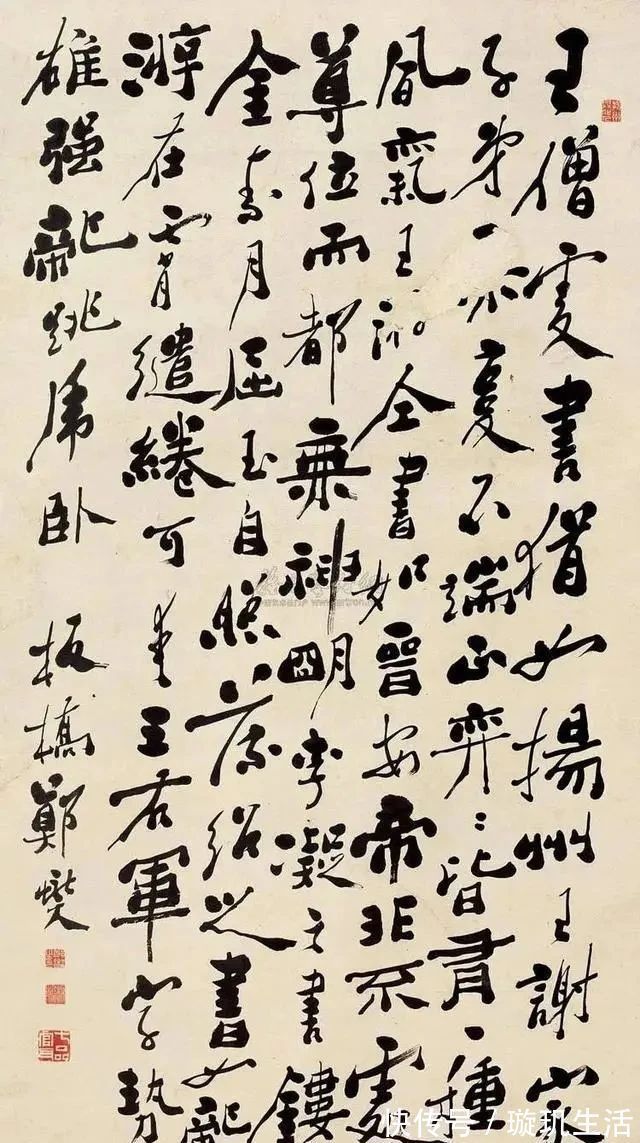 王僧虔書猶如揚州王謝家
子弟亦复不端正弈〻皆有一種
風氣王仝書如晉安帝非不處
尊位而都無神明李凝之書鏤
金素月屈玉自照薄紹之書如龍
游在霄繾綣可愛王右軍字勢
雄強龍跳虎臥
板橋鄭燮
七品官耳
快传号/璇玑生活